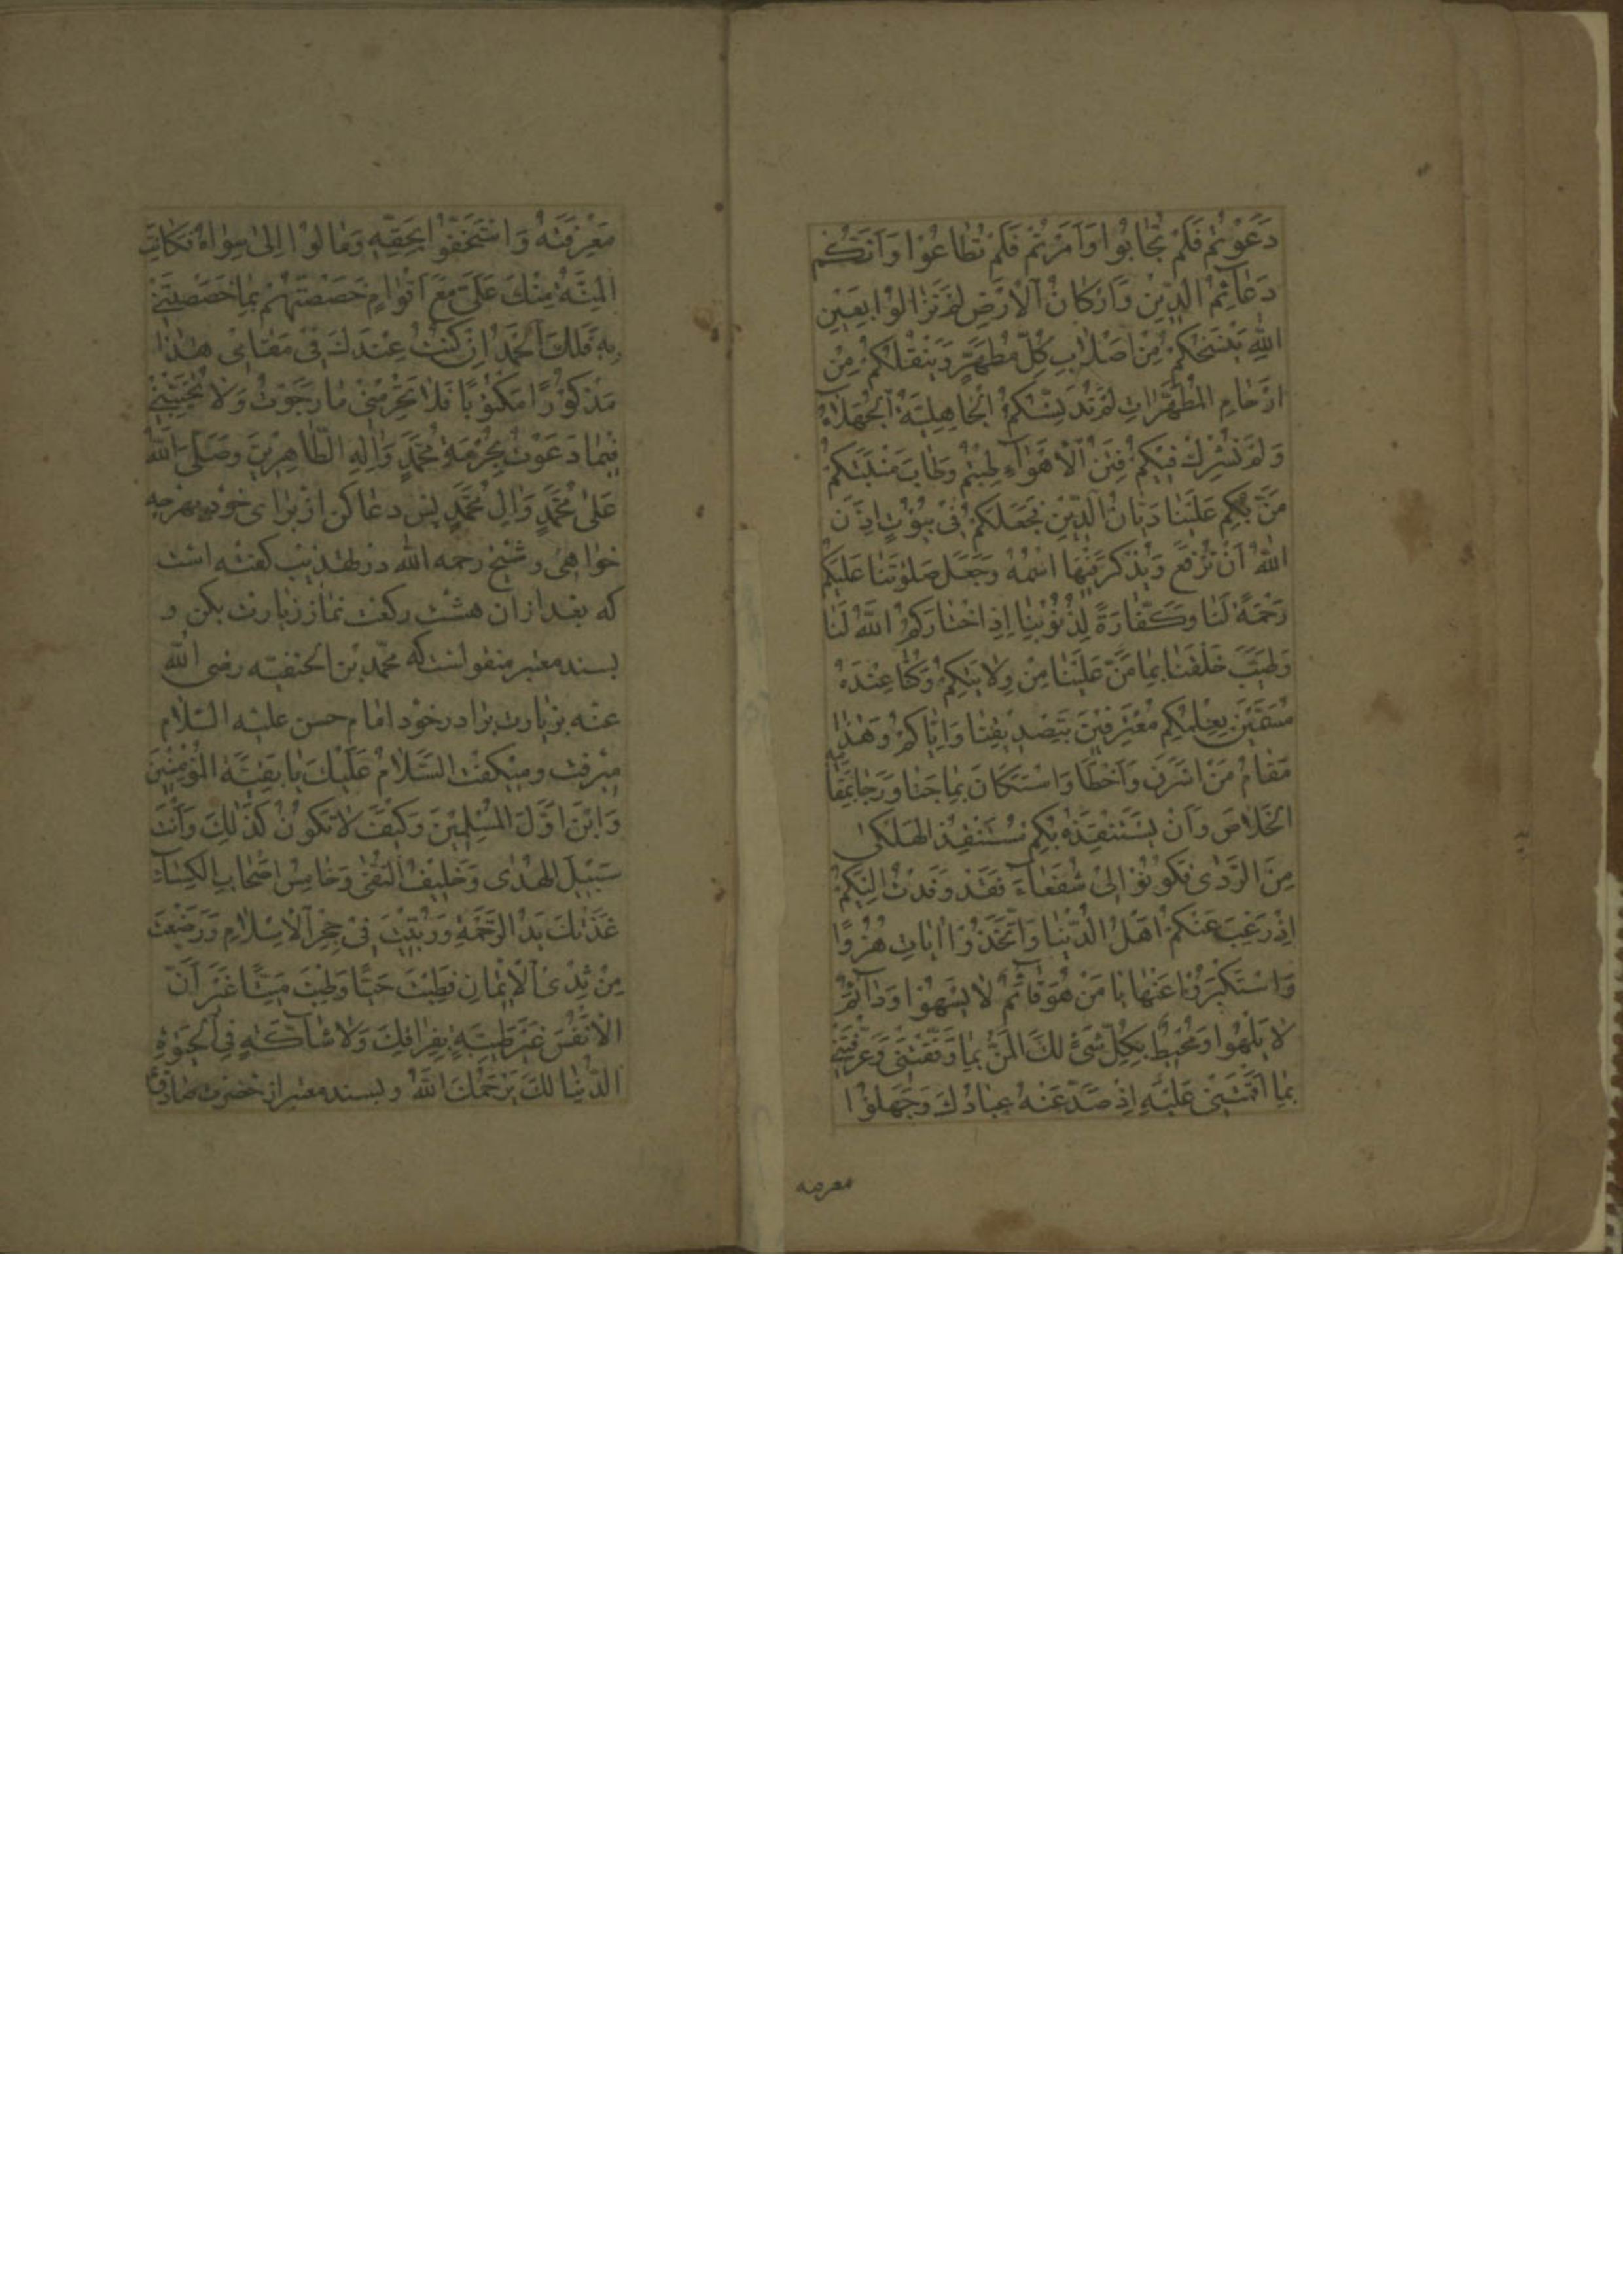 دَعَوْتُمْ فَلَمْ تُجابُوا وَاَمَرْتُمْ فَلَمْ تُطاعُوْا وَاَنَّكُمْ
دَعآئِمُ الدّيْنِ وَاَرْكانُ الْاَرْضِ لَمْ تَزالُوْا بِعَيْنِ
اللّٰهِ يَنْسَخُكُمْ مِنْ اَصْلابِ كُلِّ مُطَهَّرٍ وَيَنْقُلُكُمْ مِنْ
اَرْحامِ الْمُطَهَّراتِ لَمْ تُدَنِّسْكُمُ الْجاهِلِيَّةُ الْجُهَلاءُ
وَلَمْ تَشْرَكْ فيْكُمْ فِتَنُ الْاَهْوآءِ طِبْتُمْ وَطابَ مَنْبَتُكُمْ
مَنَّ بِكُمْ عَلَيْنا دَيّانُ الدّيْنِ فَجَعَلَكُمْ فيْ بُيُوْتٍ اَذِنَ
اللّٰهُ اَنْ تُرْفَعَ وَيُذْكَرَ فيْهَا اسْمُهُ وَجَعَلَ صَلَوٰتَنا عَلَيْكُمْ
رَحْمَةً لَنا وَكَفّارَةً لِذُنُوْبِنا اِذِ اخْتارَكُمُ اللّٰهُ لَنا
وَطَيَّبَ خَلْقَنا بِما مَنَّ عَلَيْنا مِنْ وِلايَتِكُمْ وَكُنّا عِنْدَهُ
مُسَمَّيْنَ بِعِلْمِكُمْ مُعْتَرِفيْنَ بِتَصْديْقِنا وَاِيّاكُمْ وَهٰذا
مَقامُ مَنْ اَسْرَفَ وَاَخْطَا وَاسْتَكانَ بِما جَنا وَرَجا بِمَقامِهِ
الْخَلاصَ وَاَنْ يَسْتَنْقِذَهُ بِكُمْ مُسْتَنْقِذُ الْهَلْكىٰ
مِنَ الرَّدىٰ فَكُوْنُوْا ليْ شُفَعاءَ فَقَدْ وَفَدْتُ اِلَيْكُمْ
اِذْ رَغِبَ عَنْكُمْ اَهْلُ الدُّنْيا وَاتَّخَذُوْا اٰياتِ هُزُوًا
وَاسْتَكْبَرُوْا عَنْها يا مَنْ هُوَ قائِمٌ لا يَسْهُوْا وَدآئِمٌ
لا يَلْهُوْا وَمُحيْطٌ بِكُلِّ شَيْءٍ لَكَ الْمَنُّ بِما وَفَّقْتَنيْ وَعَرَّفْتَنيْ
بِما اَقَمْتَنيْ عَلَيْهِ اِذْ صَدَّ عَنْهُ عِبادُكَ وَجَهِلُوْا
معرفته
مَعْرِفَتَهُ وَاسْتَخَفُّوْا بِحَقِّهِ وَمالُوْا اِلىٰ سِواهُ فَكانَتِ
الْمِنَّةُ مِنْكَ عَلَيَّ مَعَ اَقْوامٍ خَصَصْتَهُمْ بِما خَصَصْتَنيْ
بِهِ فَلَكَ الْحَمْدُ اِذْ كُنْتُ عِنْدَكَ فيْ مَقاميْ هٰذا
مَذْكُوْرًا مَكْتُوْبًا فَلا تَحْرِمْنيْ ما رَجَوْتُ وَلا تُخَيِّبْنيْ
فيْما دَعَوْتُ بِحُرْمَةِ مُحَمَّدٍ وَاٰلِهِ الطّاهِريْنَ وَصَلَّى اللّٰهُ
عَلىٰ مُحَمَّدٍ وَاٰلِ مُحَمَّدٍ پس دعا كن از براى خود بهرچه
خواهى و شيخ رحمه اللّٰه در تهذيب كفته است
كه بعد از ان هشت ركعت نماز زيارت بكن و
بسند معتبر منقولست كه محمّد بن الحنفيّه رضى اللّٰه
عنه بزيارت برادر خود امام حسن عليه السّلام
ميرفت و ميكفت السَّلامُ عَلَيْكَ يا بَقِيَّةَ الْمُؤْمِنيْنَ
وَابْنَ اَوَّلِ الْمُسْلِميْنَ وَكَيْفَ لا تَكُوْنُ كَذٰلِكَ وَاَنْتَ
سَبيْلُ الْهُدىٰ وَحَليْفُ التُّقىٰ وَخامِسُ اَصْحابِ الْكِسآءِ
غَذَتْكَ يَدُ الرَّحْمَةِ وَرُبّيْتَ فيْ حِجْرِ الْاِسْلامِ وَرَضَعْتَ
مِنْ ثَدْيِ الْاِيْمانِ فَطِبْتَ حَيًّا وَطِبْتَ مَيِّتًا غَيْرَ اَنَّ
الْاَنْفُسَ غَيْرُ طَيِّبَةٍ بِفِراقِكَ وَلا شآكَّةٍ فِي الْحَيٰوةِ
الدُّنْيا لَكَ يَرْحَمُكَ اللّٰهُ و بسند معتبر از حضرت صادق